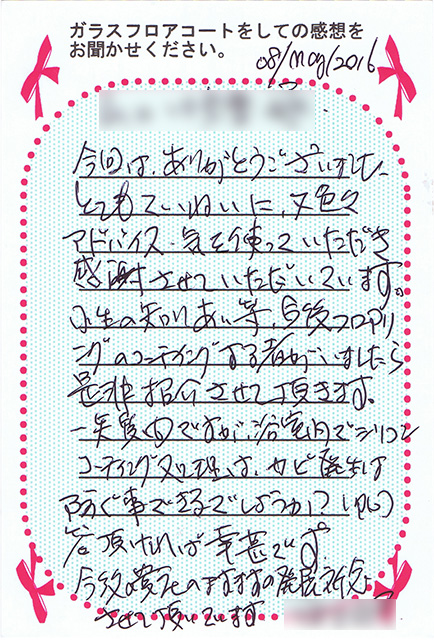 ガラスフロアコートをしての感想を
お聞かせください。
08/May/2016
今回は、ありがとうございました
とてもていねいに、又色々
アドバイス・気を使っていただき
感謝させていただいています。
小生の知りあい等、今後フロアリ
ングのコーティングする者がいましたら
是非紹介させて頂きます。
一点質問ですが、浴室内でシリコン
コーティング処理は、カビ発生は
防ぐ事できるでしょうか?
答頂ければ幸甚です。
今後の貴社のますますの発展祈念
させて頂いています